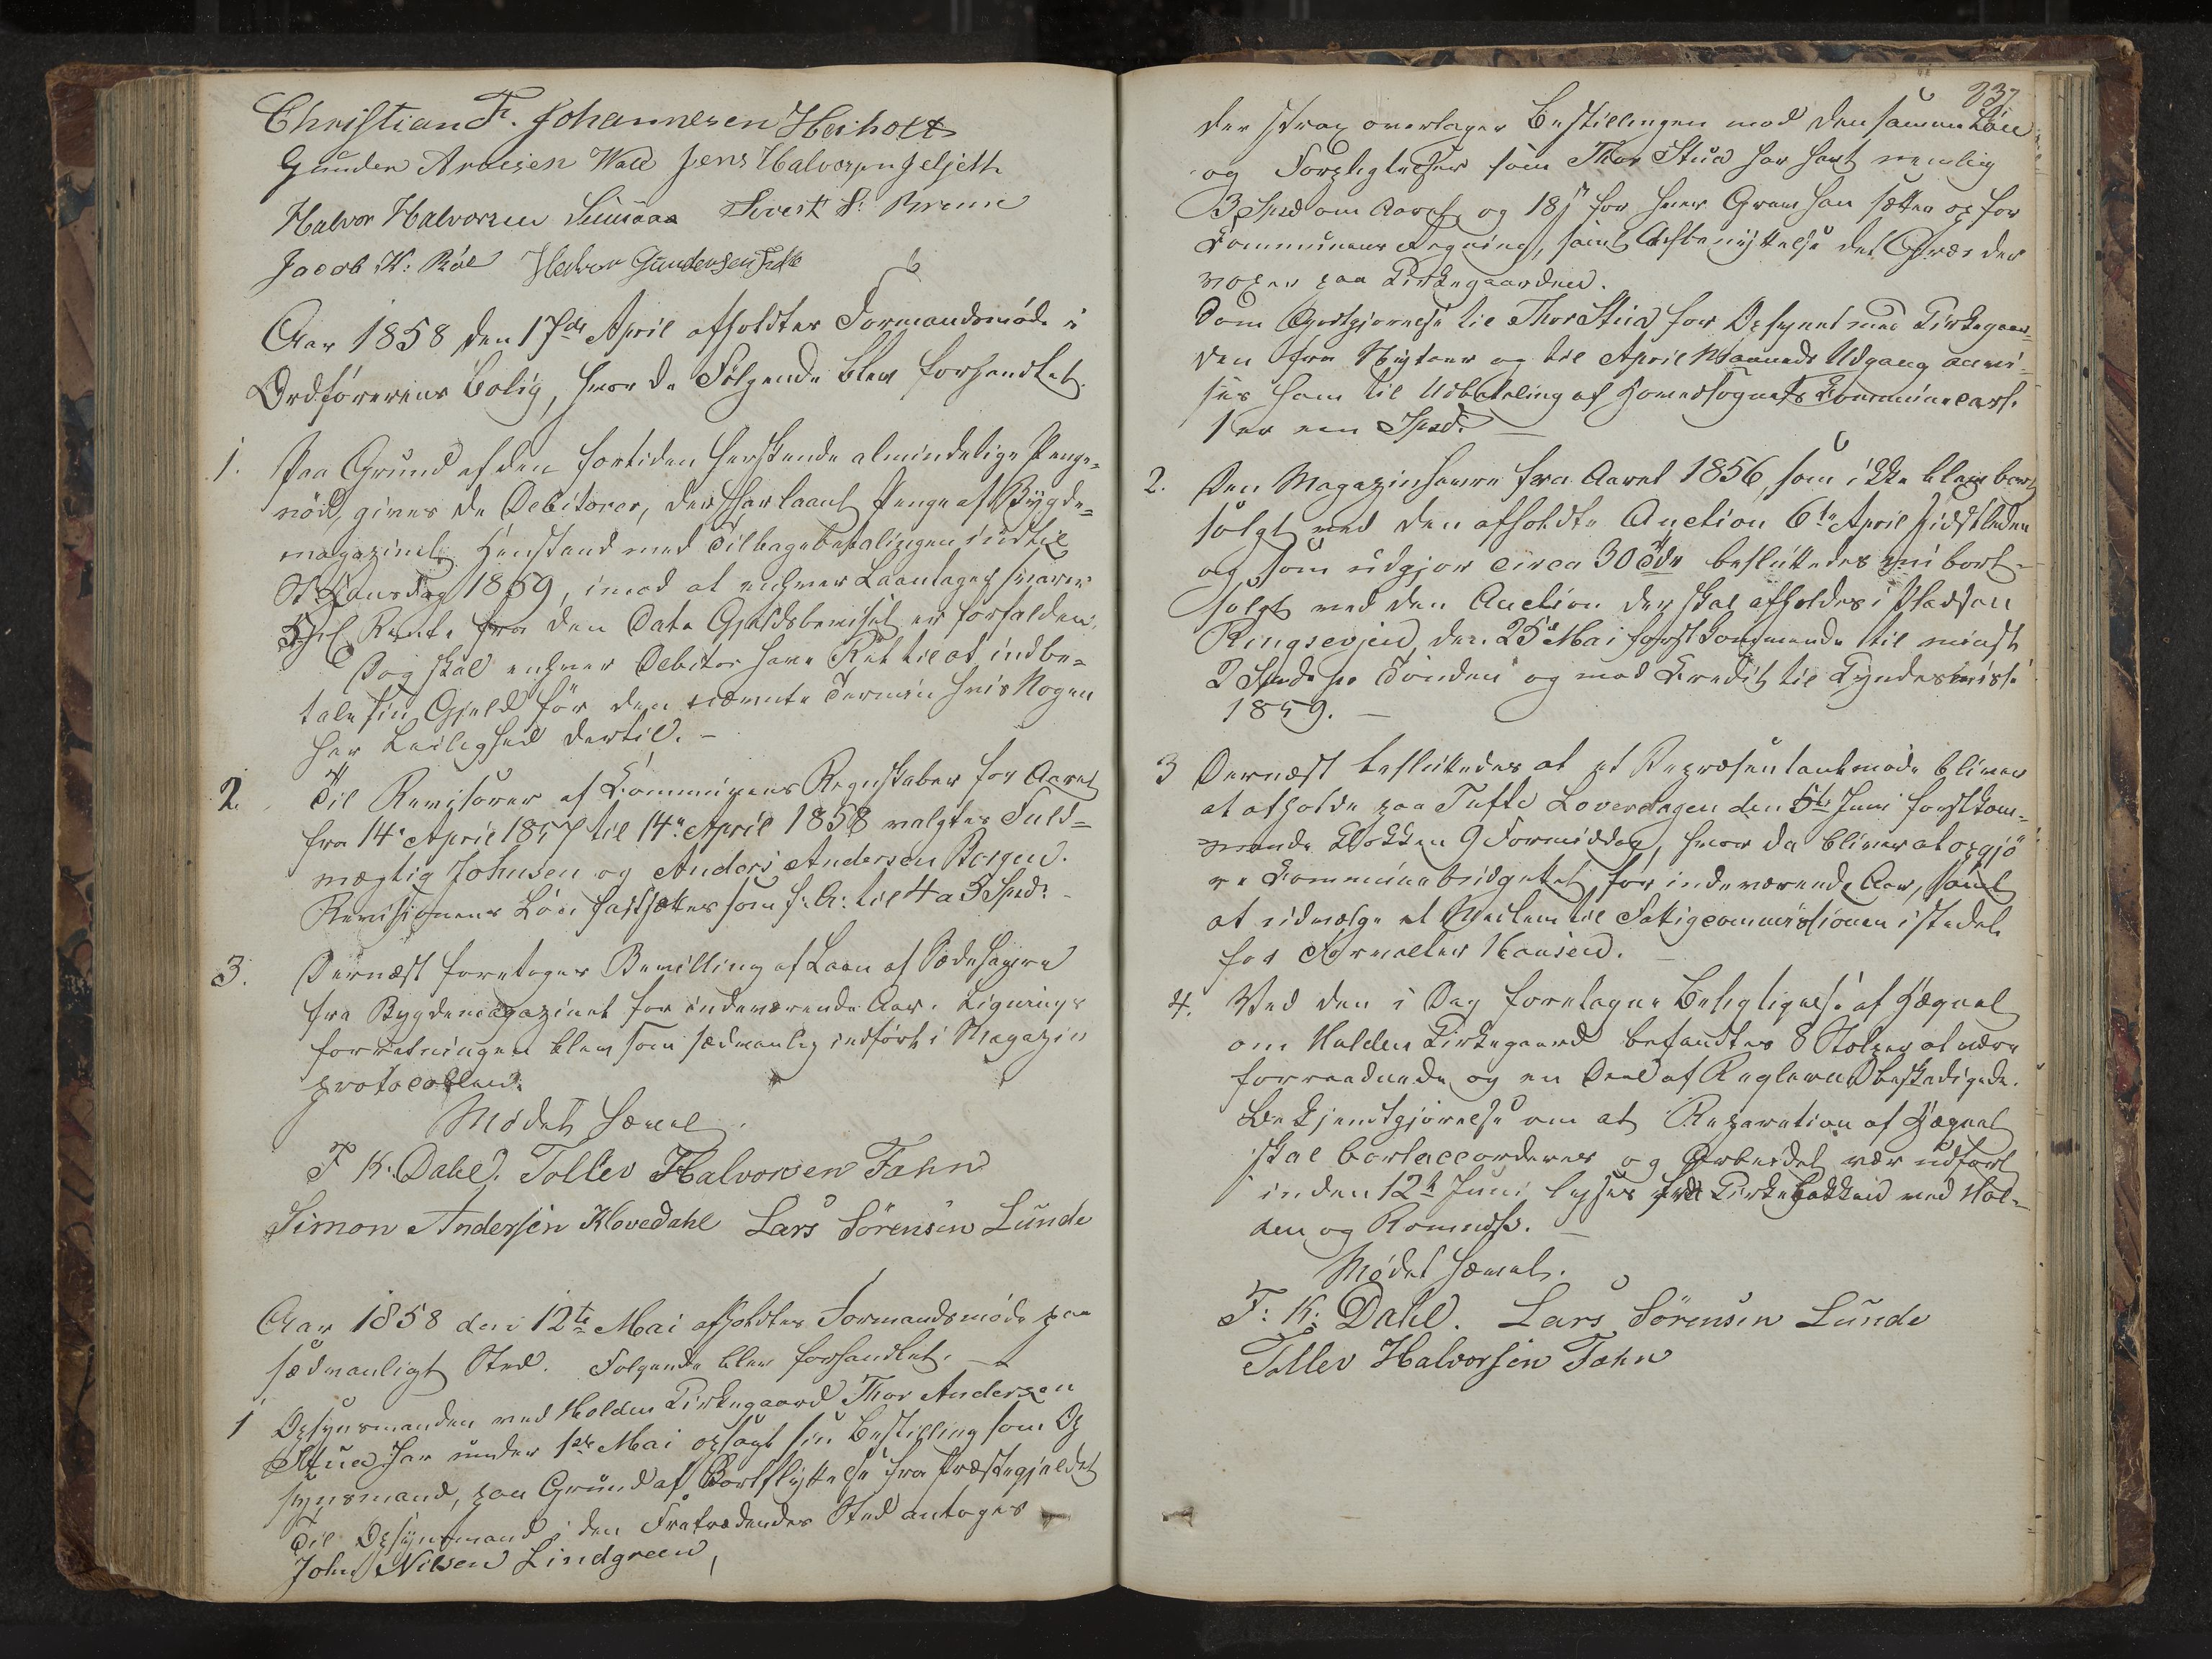 Christian F. Johannesen Heiholt
Gunder Arnesen Wala Jens Halvorsen
Halvor Halvorsen Siversk S. Kreme
Jacob N: Røe Halvor Gundersen
Aar 1858 den 17de April afholdtes Formandsmøde i
Ordførerens Bolig, hvor da Følgende blev forhandlet.
1. Paa Grund af den fortiden herskende almindelige Penge-
nød, gives de Debitorer, der har laant Penge af Bygde-
magazinet Henstand med Tilbagebetalingen indtil
St. Hansdag 1859, imod at enhver Laantager svarer
Rente fra den Dato Gjeldsbeviset er forfalden.
Dog skal enhver Debitor have Ret til at indbe-
tale sin Gjeld før den nævnte Termin hvis Nogen
har Leilighed dertil. –
2. Til Revisorer af Kommunens Regnskaber for Aaret
fra 14de April 1857 til 14de April 1858 valgtes Fuld-
mægtig Johnsen og Anders Andersen Borgen.
Revisionens Løn fastsættes som f: A: til 4 a 5 Spd: -
3. Dernæst foretoges Bevilling af Laan af Sædehavre
fra Bygdemagazinet for indeværende Aar. Lignings
forretningen blev som sædvanlig indført i Magazin
protocollen.
Mødet hævet.
F K. Dahl. Tollev Halvorsen Fahn
Simon Andersen Klovedahl Lars Sörensen Lunde
Aar 1858 den 12te Mai afholdtes Formandsmøde paa
sædvanligt Sted. Følgende blev forhandlet. –
1 Opsynsmanden ved Holden Kirkegaard Thor Andersen
Stua har under 1ste Mai opsagt sin Bestilling som Op
synsmand, paa Grund af Bortflyttelse fra Præstegjeldet
Til Opsynsmand i den Fratrædendes Sted antoges
John Nilsen Lindgreen,
237
der strax overtager Bestillingen med den samme Løn
og Forpligtelser som Thor Stua har havt nemlig
3 Spd om Aaret og 18 s for hver Grav han sætter op for
Kommunens Regning, samt Afbenyttelse det Græs der
voxer paa Kirkegaarden.
Som Godtgjørelse til Thor Stua for Opsynet med Kirkegaar-
den fra Nytaar og til April Maaneds Udgang anvi-
ses ham til Udbetaling af Hovedsognets Kommunecasse
1 er een Spd. –
2. Den Magazinhavre fra Aaret 1856, som ikke blev bort
solgt ved den afholdte Auction 6te April sidstleden
og som udgjør circa 30 Tdr besluttedes bort-
solgt ved den Auction der skal afholdes i Pladsen
Ringsevjen, den 25de Mai førstkommende til mindst
2 Spd pr Tønden og mod Kredit til Kyndelmisse
1859. –
3 Dernæst besluttedes at et Repræsentantmøde bliver
at afholde paa Tufte Løverdagen den 5te Juni førstkom-
mende Klokken 9 Formiddag, hvor da bliver at opgjö
re Kommunebudgetet for indeværende Aar, samt
at udvælge et Medlem til Fattigcommissionen istedet
for Forvalter Hansen. –
4. Ved den i Dag foretagne Besigtigelse af Hægnet
om Holden Kirkegaard befandtes 8 Stolper at være
forraadnede og en Deel af Reglerne beskadigede.
Bekjendtgjørelse om at Reparation af Hægnet
skal bortaccorderes og Arbeidet vær udført
inden 12te Juni lyses fra Kirkebakken ved Hol-
den og Romnes. –
Mødet hævet.
F: K: Dahl. Lars Sörensen Lunde
Tollev Halvorsen Fahn